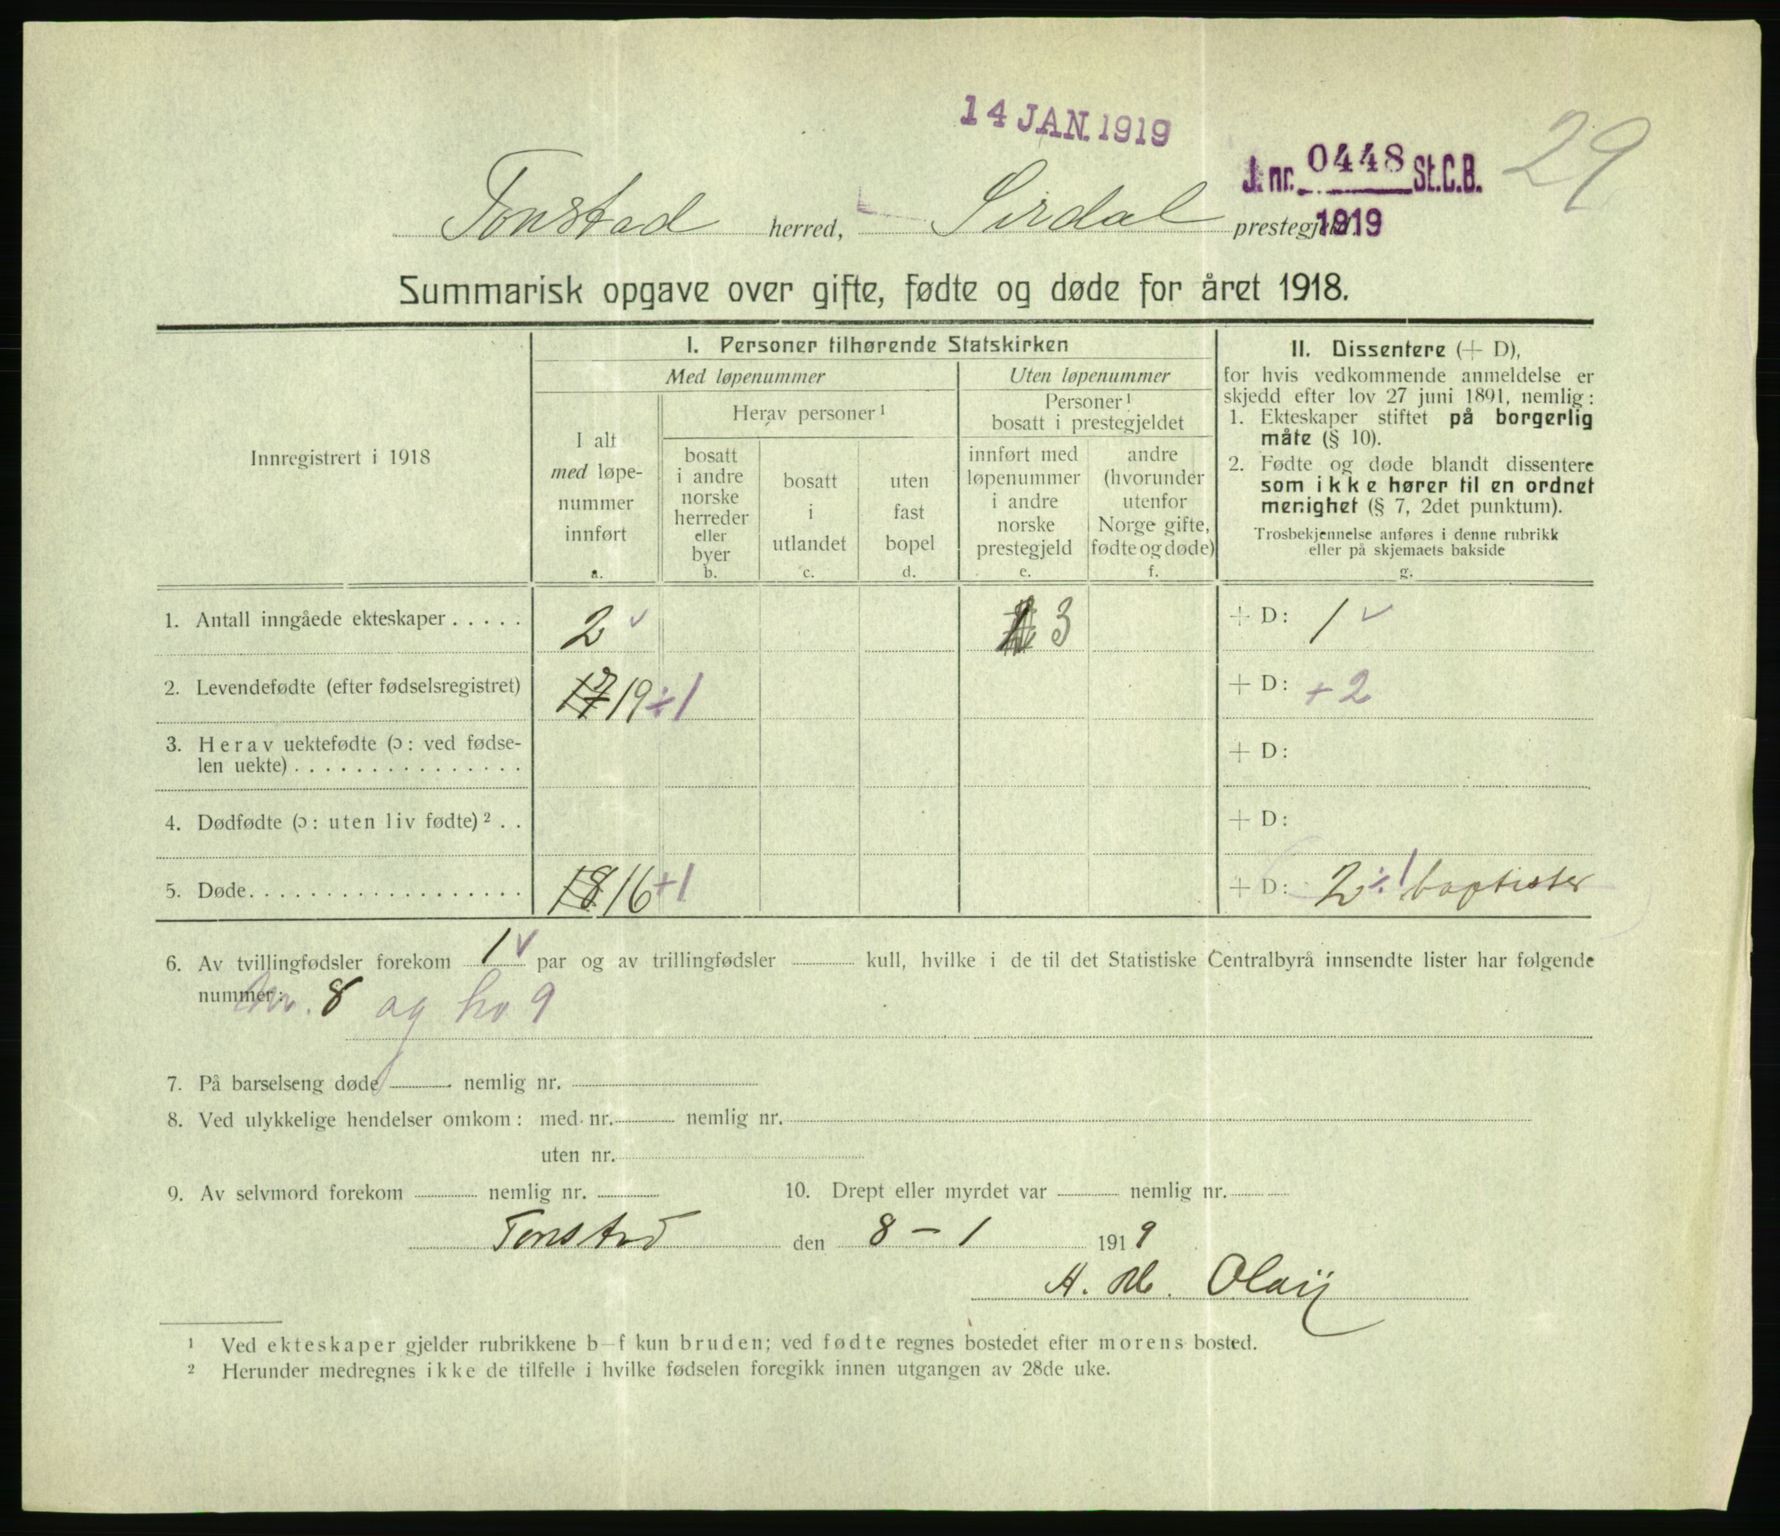 14 JAN. 1919
29
J. nr. 0448 St.C.B.
1919
Tonstad herred, Sirdal prestegjeld.
Summarisk opgave over gifte, fødte og døde for året 1918.
Innregistrert i 1918
I. Personer tilhørende Statskirken
Med løpenummer
Uten løpenummer
I alt
med løpe-
nummer
innført
a.
Herav personer ¹
bosatt
i andre
norske
herreder
eller
byer
b.
bosatt
i
utlandet
c.
uten
fast
bopel
d.
Personer ¹
bosatt i prestegjeldet
innført med
løpenummer
i andre
norske
prestegjeld
e.
andre
(hvorunder
utenfor
Norge gifte,
fødte og døde)
f.
II. Dissentere (+ D),
for hvis vedkommende anmeldelse er
skjedd efter lov 27 juni 1891, nemlig:
1. Ekteskaper stiftet på borgerlig
måte (§ 10).
2. Fødte og døde blandt dissentere
som ikke hører til en ordnet
menighet (§ 7, 2det punktum).
Trosbekjennelse anføres i denne rubrikk
eller på skjemaets bakside
g.
1. Antall inngåede ekteskaper . . . . . 2 ✓ 3 + D: 1 ✓
2. Levendefødte (efter fødselsregistret) 17 19 ÷ 1 + D: + 2
3. Herav uektefødte (ɔ: ved fødse-
len uekte) . . . . . . . . . . . . . . . + D:
4. Dødfødte (ɔ: uten liv fødte) ² . . + D:
5. Døde . . . . . . . . . . . . . . . . . . 18 16 + 1 + D: 2 ÷ 1 baptister
6. Av tvillingfødsler forekom 1 ✓ par og av trillingfødsler kull, hvilke i de til det Statistiske Centralbyrå innsendte lister har følgende
nummer: 8 og 9
7. På barselseng døde nemlig nr.
8. Ved ulykkelige hendelser omkom: med nr. nemlig nr.
uten nr.
9. Av selvmord forekom nemlig nr. 10. Drept eller myrdet var nemlig nr.
Tonstad den 8 - 1 1919
¹ Ved ekteskaper gjelder rubrikkene b-f kun bruden; ved fødte regnes bostedet efter morens bosted.
² Herunder medregnes ikke de tilfelle i hvilke fødselen foregikk innen utgangen av 28de uke.